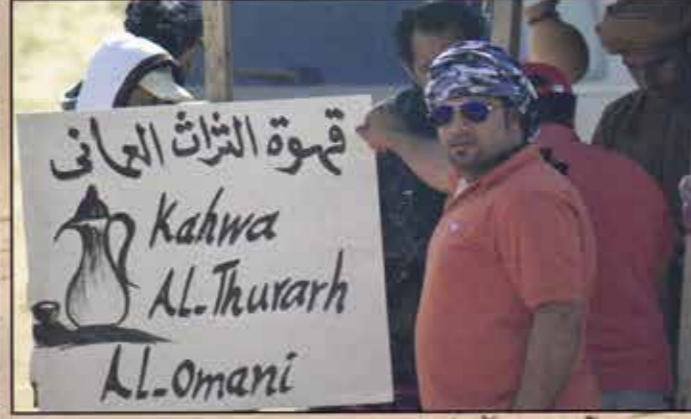 قهوة التراث العماني
Kahwa
AL-Thurarh
AL-Omani